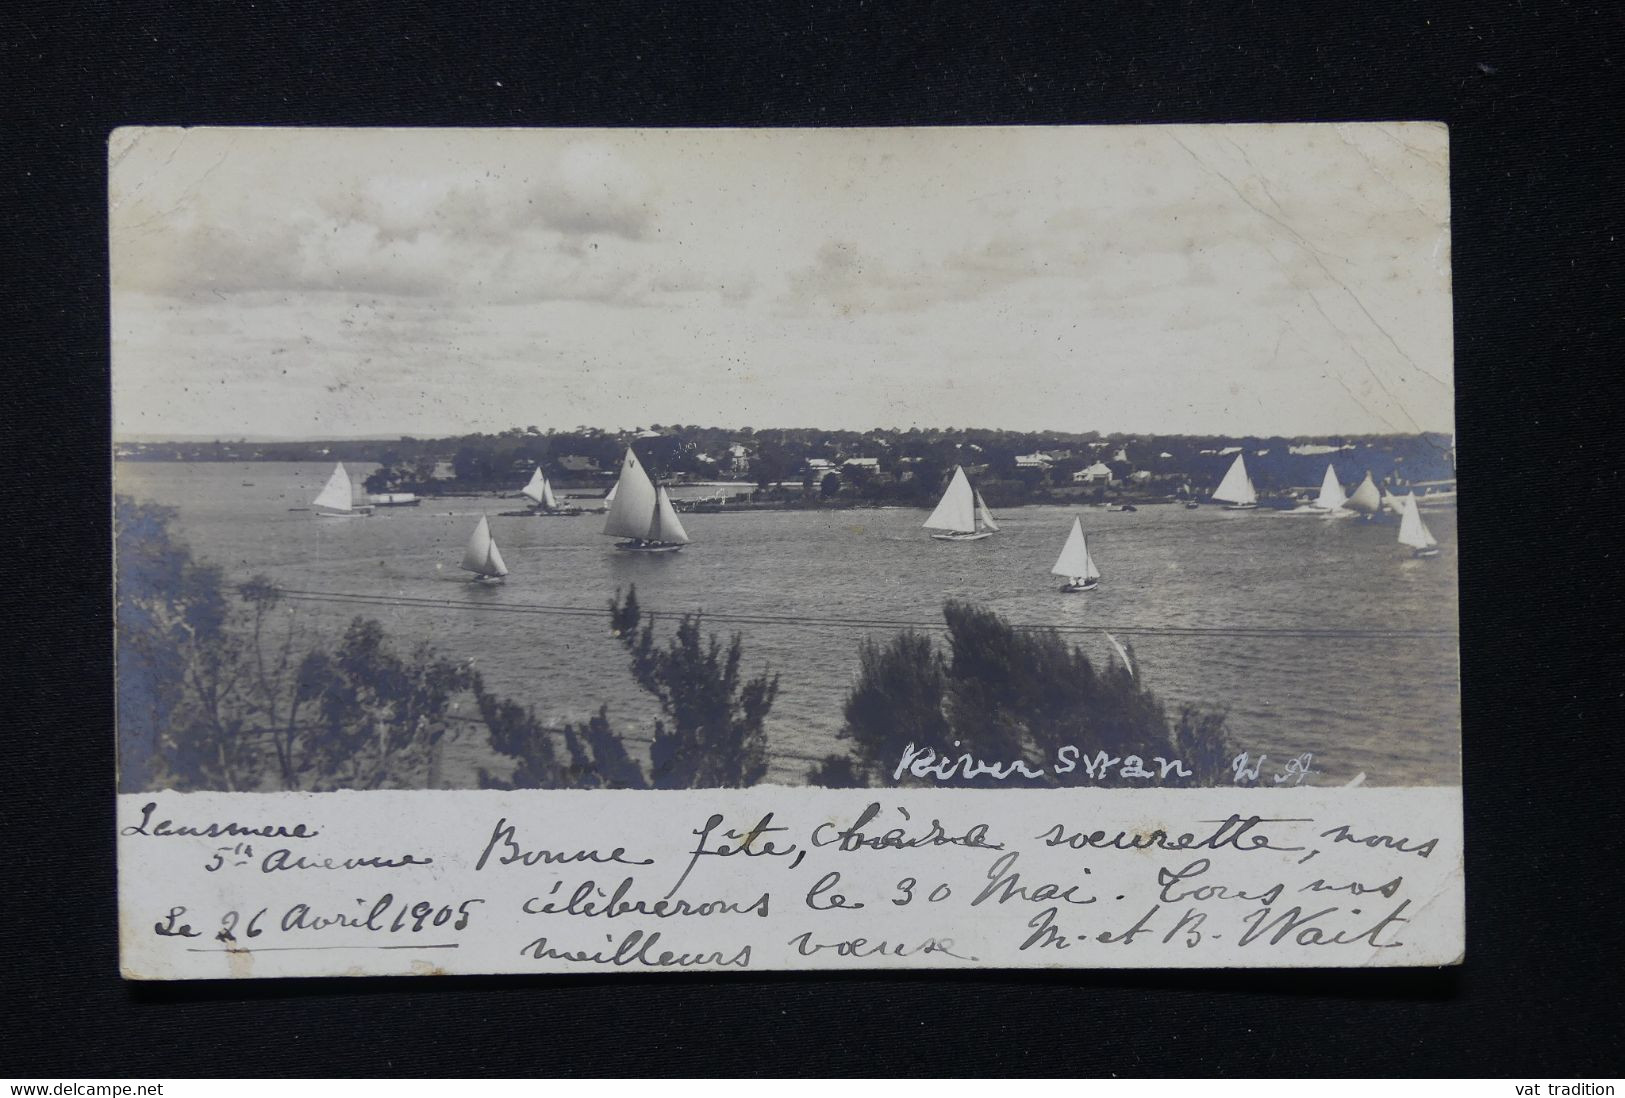 River Swan W A
Lansmere
5th Avenue
Le 26 Avril 1905
Bonne fête, chère soeurette, nous
célèbrerons le 30 Mai. Tous nos
meilleurs voeux. M. et B. Wait
www.delcampe.net
vat tradition